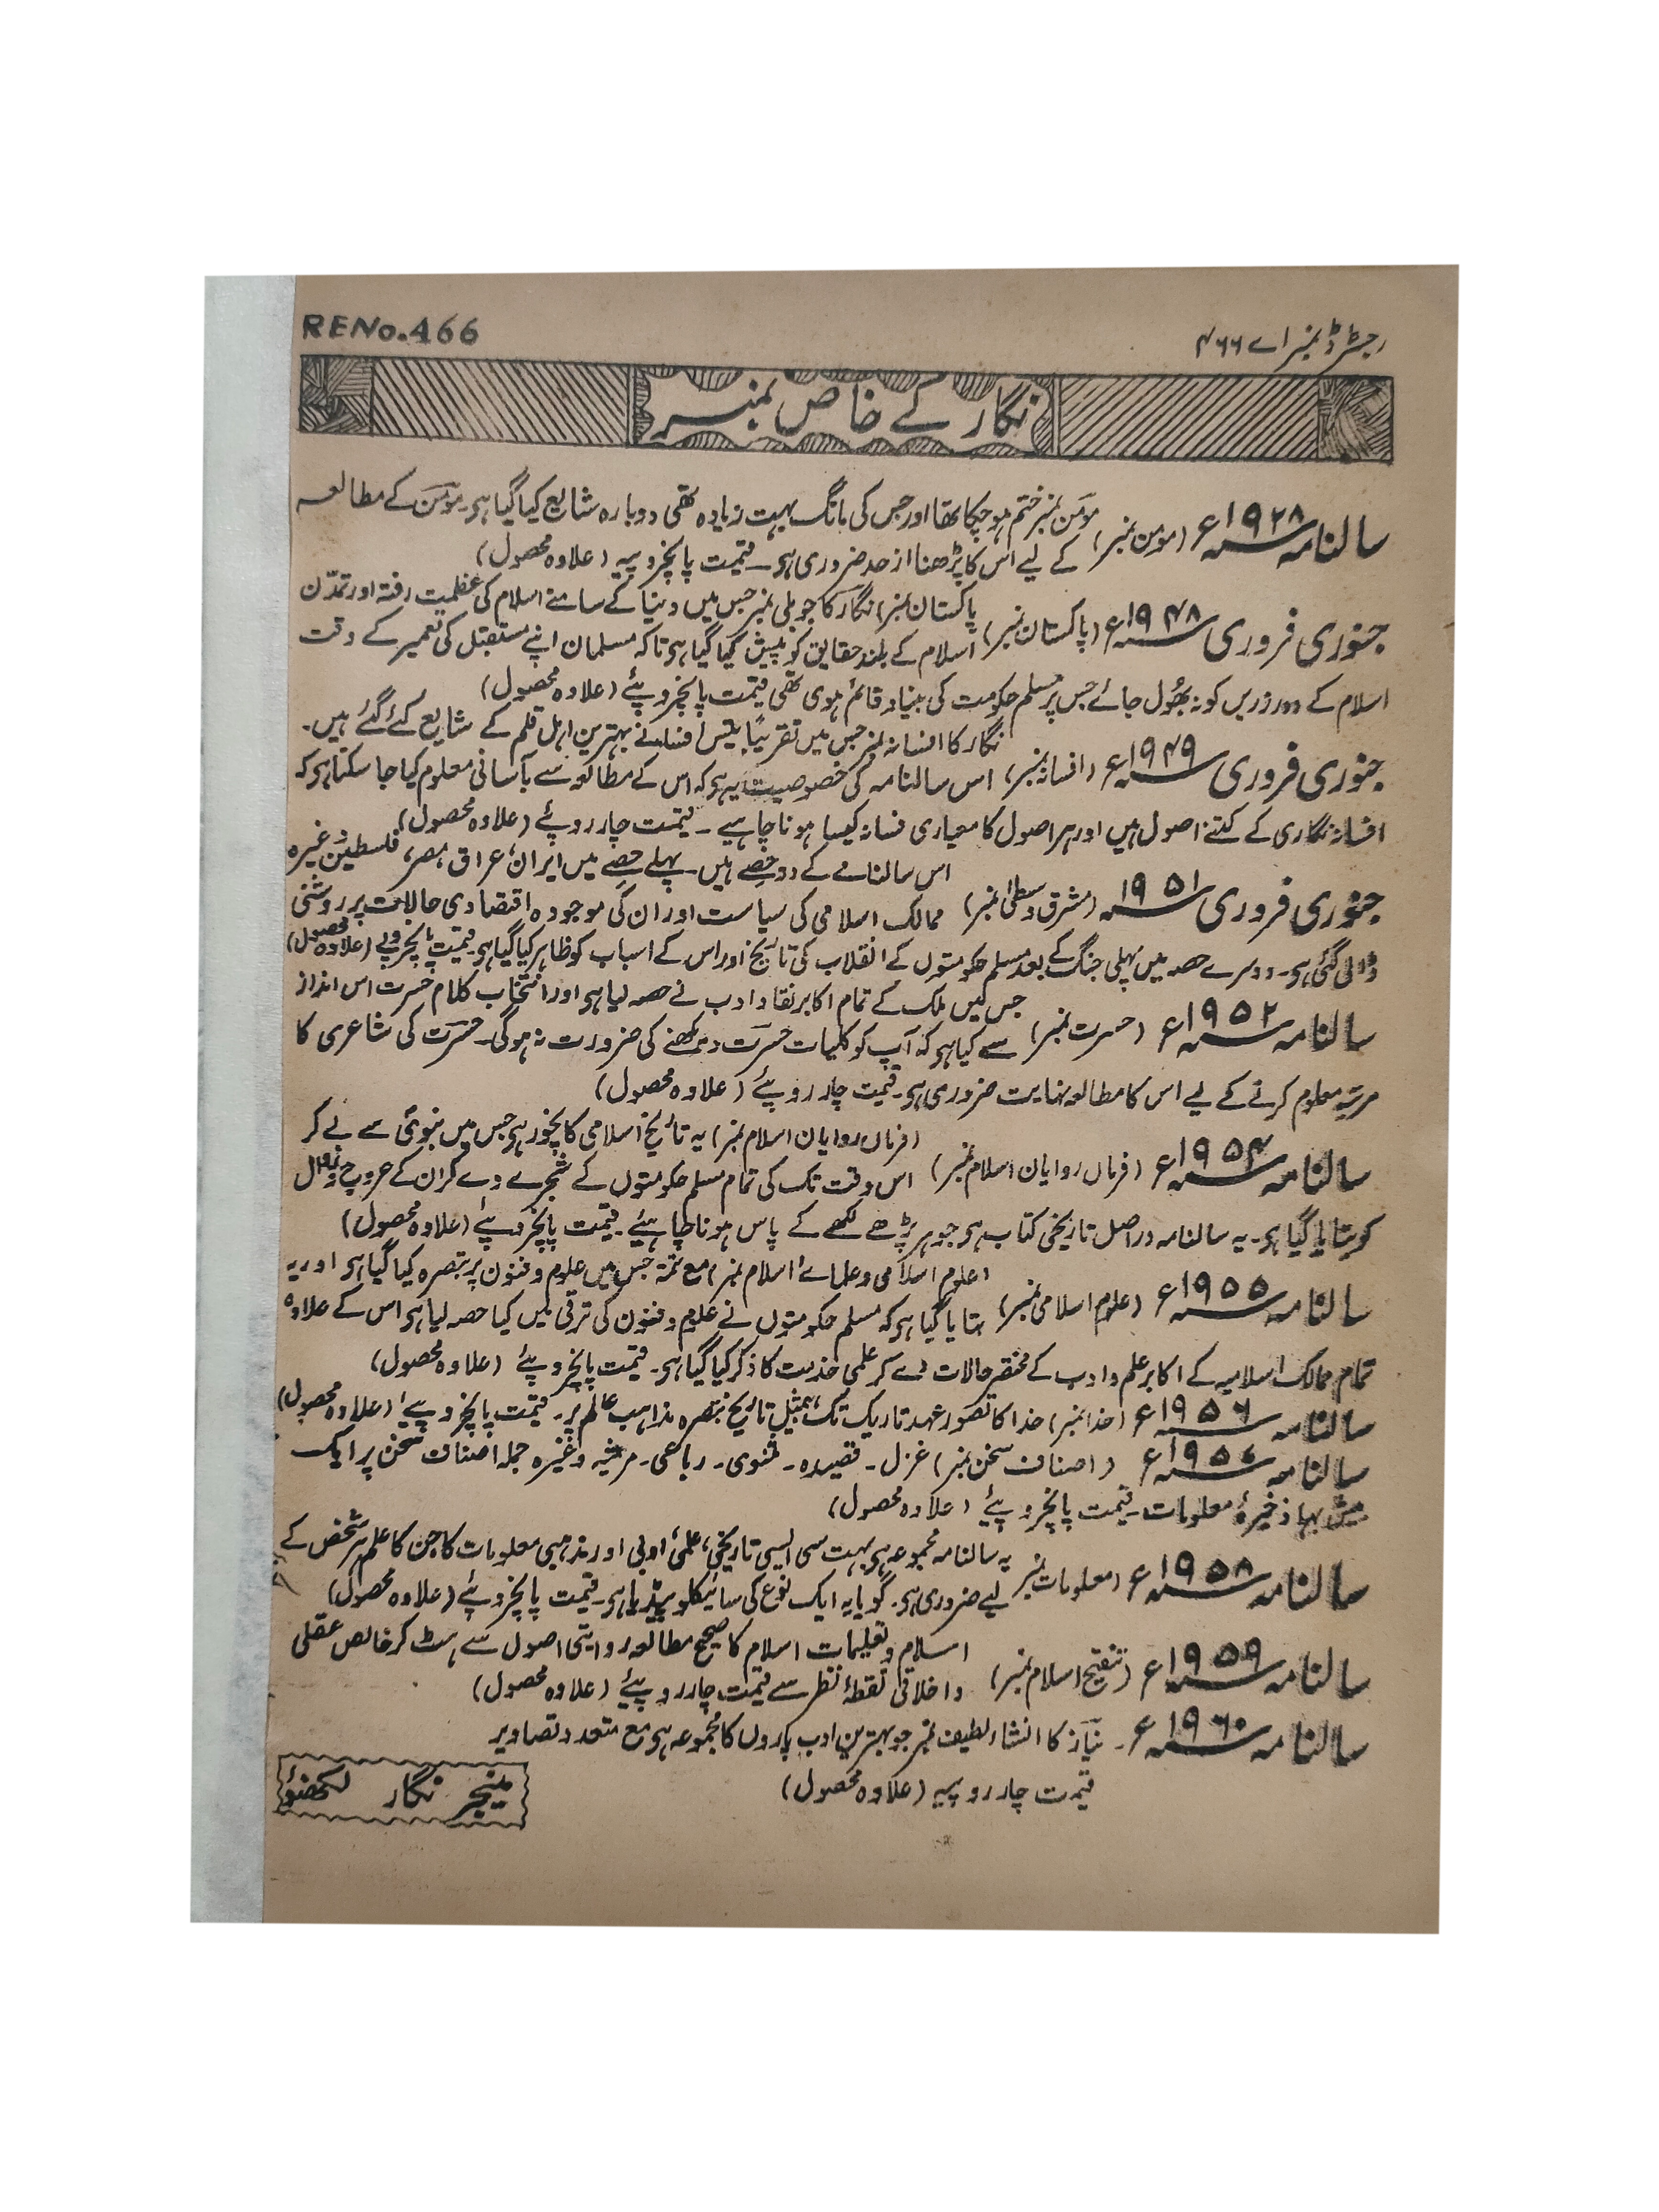 RENo.466
رجسٹرڈ نمبر اے ۴۶۶
نگار کے خاص نمبر
سالنامہ ۱۹۲۸ء (مومن نمبر) مومن نمبر ختم ہو چکا تھا اور جس کی مانگ بہت زیادہ تھی دوبارہ شایع کیا گیا ہو۔ مومن کے مطالعہ
کے لیے اس کا پڑھنا از حد ضروری ہو۔ قیمت پانچروپیہ (علاوہ محصول)
جنوری فروری ۱۹۴۸ء (پاکستان نمبر) پاکستان نمبر) نگار کا جوبلی نمبر جس میں دنیا کے سامنے اسلام کی عظمیت رفتہ اور تمدّن
اسلام کے بلند حقایق کو پیش کیا گیا ہو تاکہ مسلمان اپنے مستقبل کی تعمیر کے وقت
اسلام کے دور زریں کو نہ بھُول جائے جس پر مسلم حکومت کی بنیاد قائم ہوی تھی قیمت پانچروپئے (علاوہ محصول)
جنوری فروری ۱۹۴۹ء (افسانہ نمبر) نگار کا افسانہ نمبر جس میں تقریباً بیس افسانے بہترین اہل قلم کے شایع کئے گئے ہیں۔
اس سالنامہ کی خصوصیت یہ ہو کہ اس کے مطالعہ سے بآسانی معلوم کیا جا سکتا ہو کہ
افسانہ نگاری کے کتنے اصول ہیں اور ہر اصول کا معیاری فسانہ کیسا ہونا چاہیے۔ قیمت چار روپئے (علاوہ محصول)
جنوری فروری ۱۹۵۱ (مشرق وسطیٰ نمبر) اس سالنامے کے دو حصے ہیں۔ پہلے حصے میں ایران، عراق، مصر، فلسطین وغیرہ
ممالک اسلامی کی سیاست اور ان کی موجودہ اقتصادی حالات پر روشنی
ڈالی گئی ہو۔ دوسرے حصہ میں پہلی جنگ کے بعد مسلم حکومتوں کے انقلاب کی تاریخ اور اس کے اسباب کو ظاہر کیا گیا ہو۔ قیمت پانچروپے (علاوہ محصول)
سالنامہ ۱۹۵۲ء (حسرت نمبر) جس میں ملک کے تمام اکابر نقاد ادب نے حصہ لیا ہو اور انتخاب کلام حسرت اس انداز
سے کیا ہو کہ آپ کو کلیات حسرت دیکھنے کی ضرورت نہ ہوگی۔ حسرت کی شاعری کا
مرتبہ معلوم کرنے کے لیے اس کا مطالعہ نہایت ضروری ہو۔ قیمت چار روپئے (علاوہ محصول)
سالنامہ ۱۹۵۴ء (فرماں روایان اسلام نمبر) (فرماں روایان اسلام نمبر) یہ تاریخ اسلامی کا نچوڑ ہو جس میں نبوی سے لے کر
اس وقت تک کی تمام مسلم حکومتوں کے شجرے دے کر ان کے عروج و زوال
کو بتایا گیا ہو۔ یہ سالنامہ دراصل تاریخی کتاب ہو جو ہر پڑھے لکھے کے پاس ہونا چاہیئے۔ قیمت پانچروپئے (علاوہ محصول)
سالنامہ ۱۹۵۵ء (علوم اسلامی نمبر) (علوم اسلامی و علمائے اسلام نمبر) مع تتمہ جس میں علوم و فنون پر تبصرہ کیا گیا ہو اور یہ
بتایا گیا ہو کہ مسلم حکومتوں نے علوم و فنون کی ترقی میں کیا حصہ لیا ہو اس کے علاوہ
تمام ممالک اسلامیہ کے اکابر علم و ادب کے مختصر حالات دے کر علمی خدمت کا ذکر کیا گیا ہو۔ قیمت پانچروپئے (علاوہ محصول)
سالنامہ ۱۹۵۶ء (خدا نمبر) خدا کا تصور عہد تاریک تک، بمثیل تاریخ تبصرہ مذاہب عالم پر۔ قیمت پانچروپئے (علاوہ محصول)
سالنامہ ۱۹۵۷ء (اصناف سخن نمبر) غزل۔ قصیدہ۔ مثنوی۔ رباعی۔ مرثیہ وغیرہ جملہ اصناف سخن پر ایک
بیش بہا ذخیرۂ معلومات۔ قیمت پانچروپئے (علاوہ محصول)
سالنامہ ۱۹۵۸ء (معلومات نمبر) یہ سالنامہ مجموعہ ہو بہت سی ایسی تاریخی، علمی، ادبی اور مذہبی معلومات کا جن کا علم ہر شخص کے
لیے ضروری ہو۔ گویا یہ ایک نوع کی سائیکلوپیڈیا ہو۔ قیمت پانچروپئے (علاوہ محصول)
سالنامہ ۱۹۵۹ء (تنقیح اسلام نمبر) اسلام و تعلیمات اسلام کا صحیح مطالعہ روایتی اصول سے ہٹ کر خالص عقلی
و اخلاقی نقطۂ نظر سے قیمت چار روپئے (علاوہ محصول)
سالنامہ ۱۹۶۰ء۔ نیاز کا انشاء لطیف نمبر جو بہترین ادب پاروں کا مجموعہ ہو مع متعدد تصاویر
قیمت چار روپیہ (علاوہ محصول)
مینجر نگار لکھنؤ